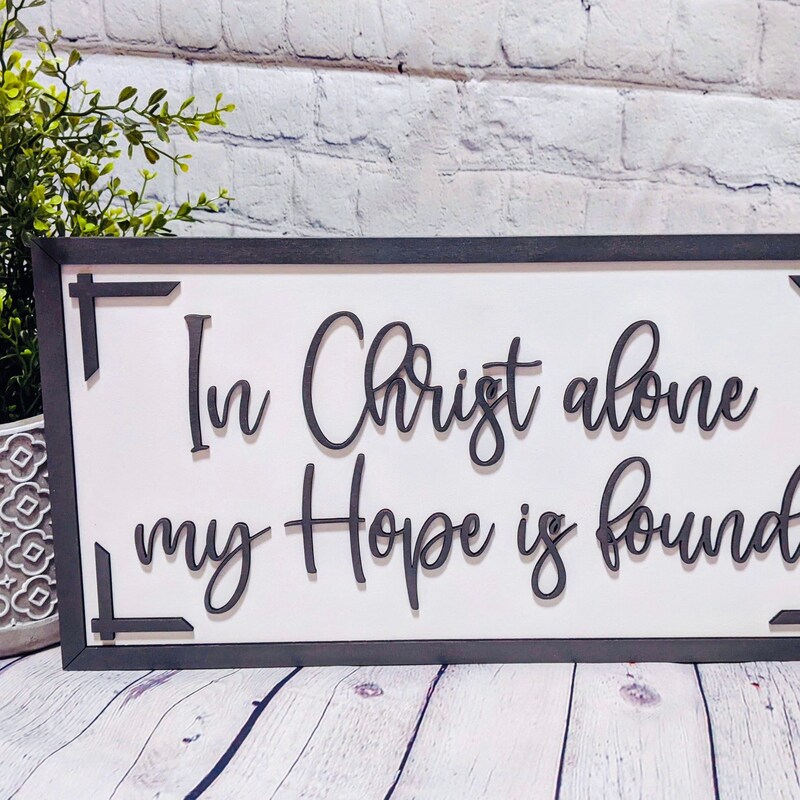 In Christ alone
my Hope is found